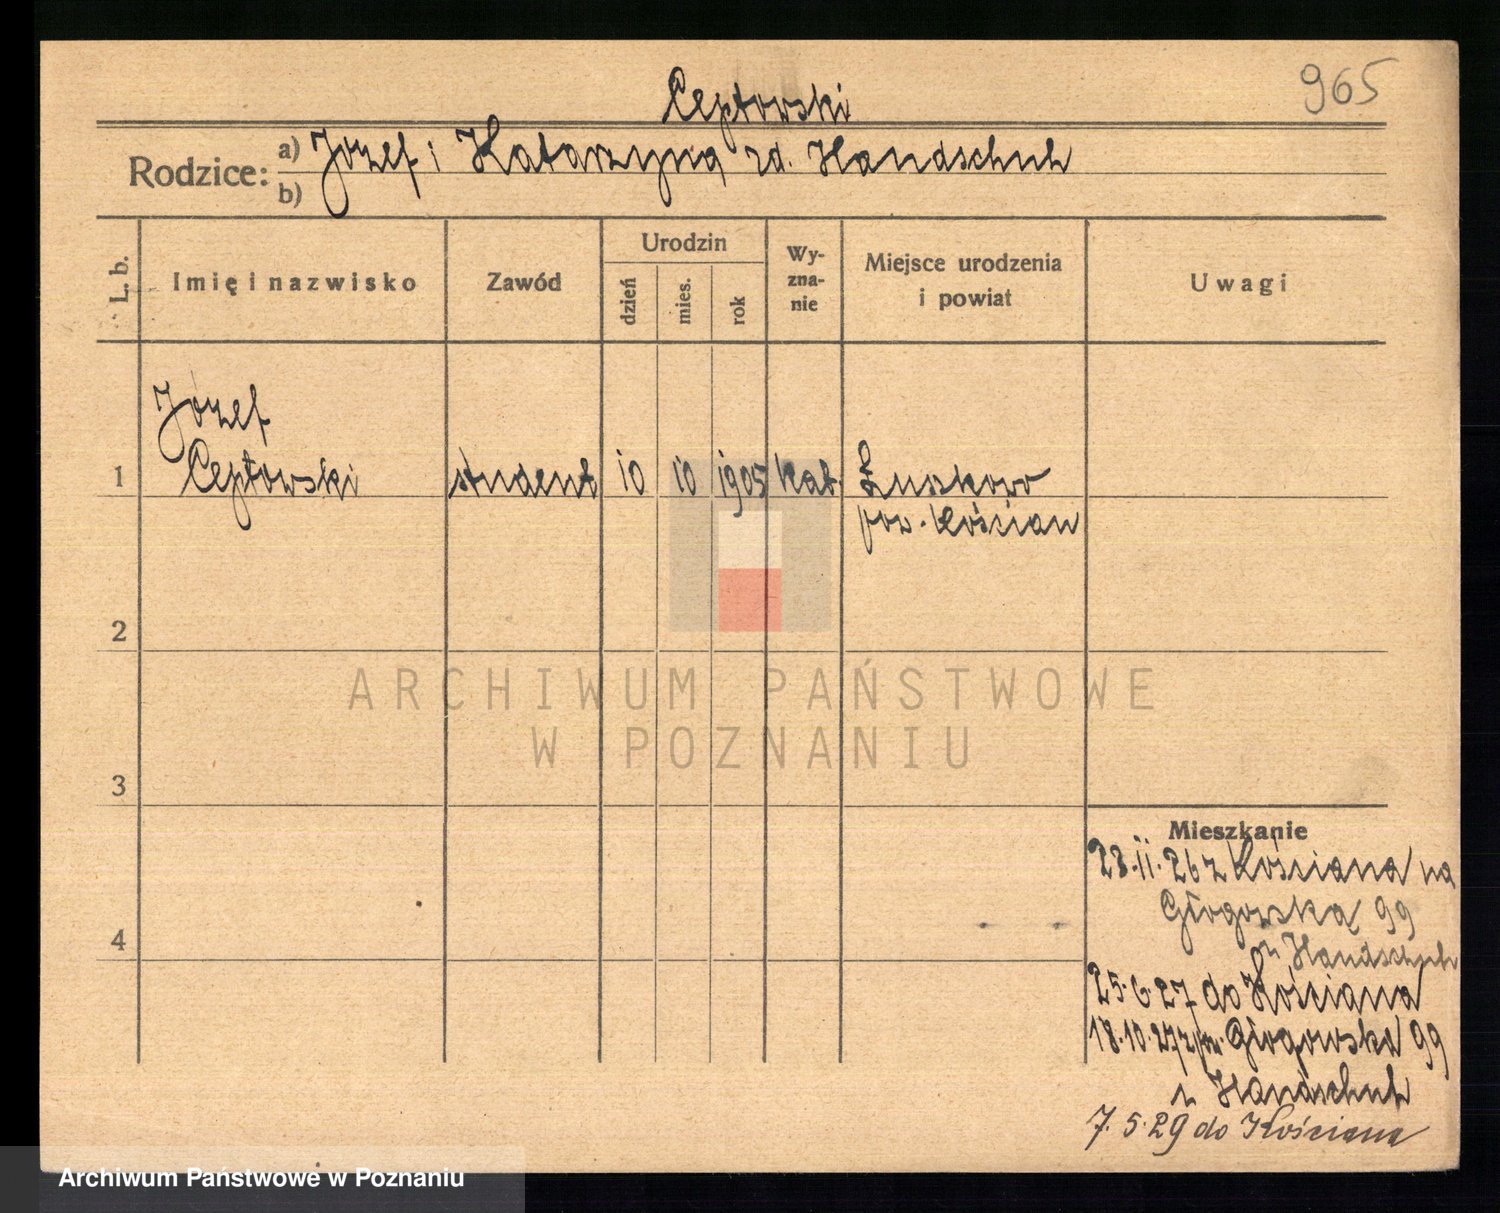 965
Ceptowski
Rodzice: a) Józef i Katarzyna rd. Handschuh
b)
L. b.
Imię i nazwisko
Zawód
Urodzin
dzień
mies.
rok
Wy-
zna-
nie
Miejsce urodzenia
i powiat
Uwagi
Józef
1 Ceptowski student 10 10 1905 kat.
pow. Kościan
2
ARCHIWUM PAŃSTWOWE
W POZNANIU
3
Mieszkanie
23.11.26 z Kościana na
Głogowska 99
4
u Handschuh
25.6.27 do Kościana
18.10.27 z pow. Głogowska 99
u Handschuh
7.5.29 do Kościana
Archiwum Państwowe w Poznaniu